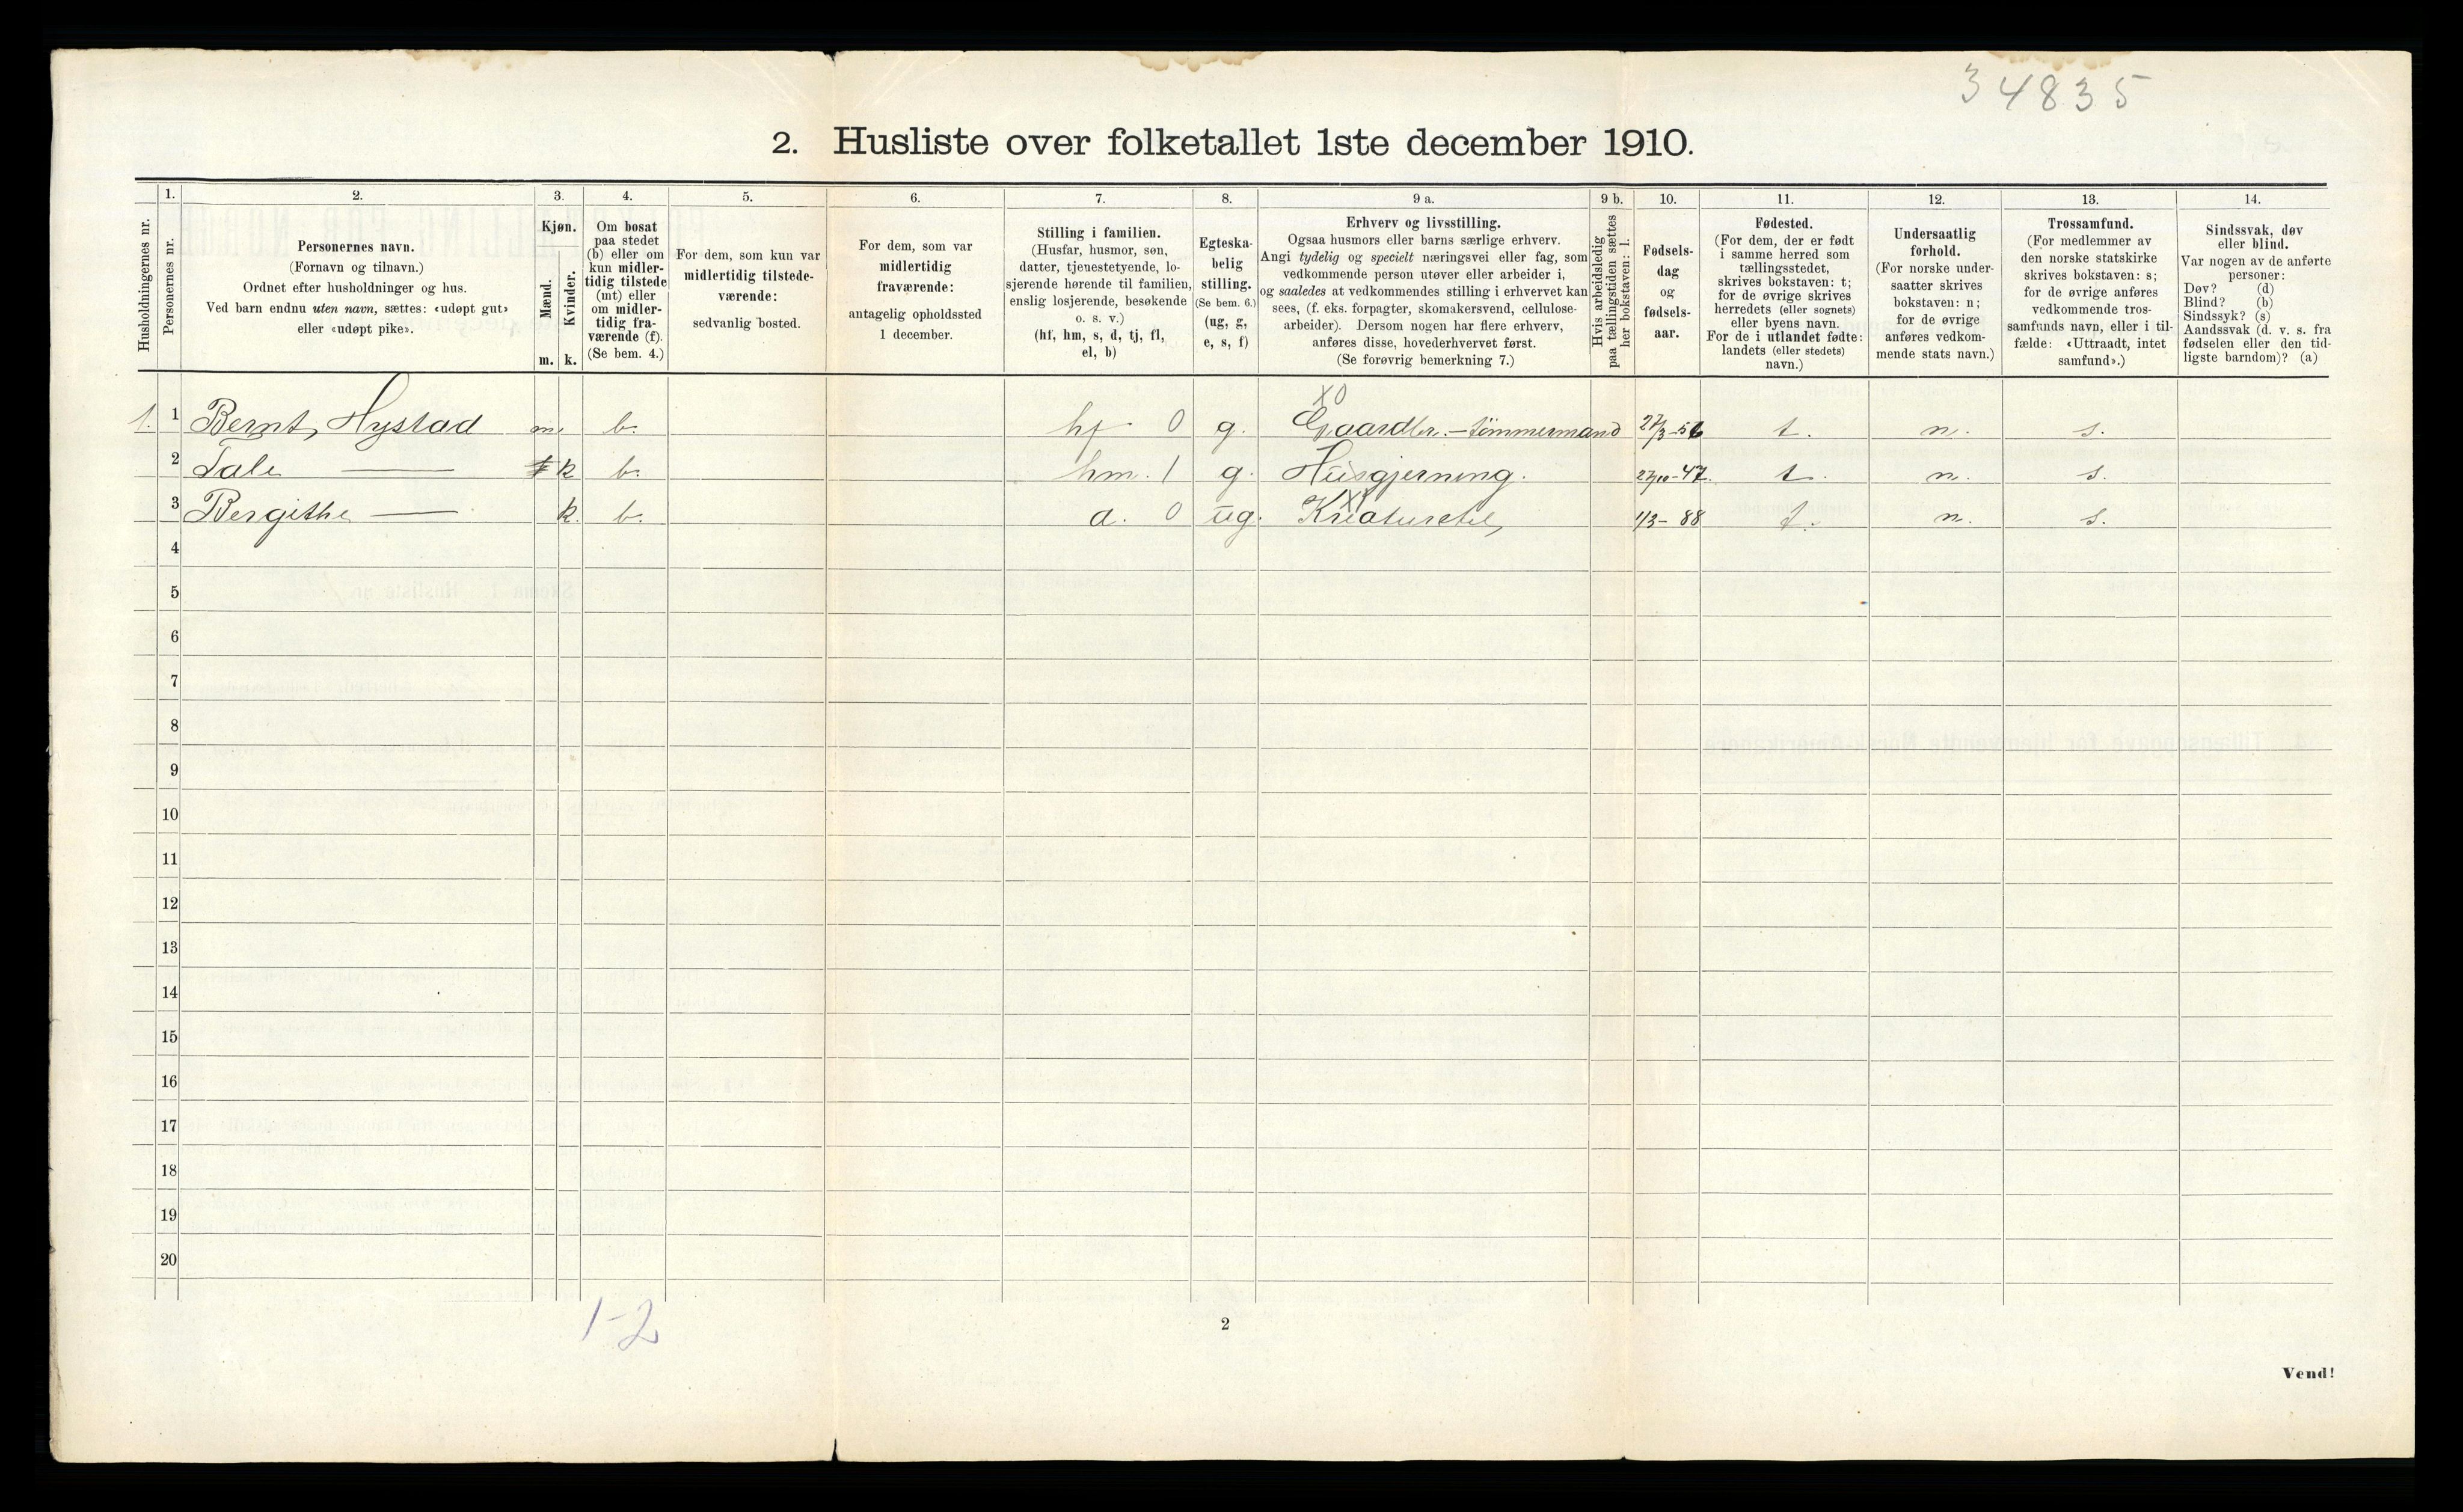 34835
2. Husliste over folketallet 1ste december 1910.
Husholdningernes nr.
1.
Personernes nr.
2.
Personernes navn.
(Fornavn og tilnavn.)
Ordnet efter husholdninger og hus.
Ved barn endnu uten navn, sættes: «udøpt gut»
eller «udøpt pike».
3.
Kjøn.
Mænd.
Kvinder.
m. k.
4.
Om bosat
paa stedet
(b) eller om
kun midler-
tidig tilstede
(mt) eller
om midler-
tidig fra-
værende (f).
(Se bem. 4.)
5.
For dem, som kun var
midlertidig tilstede-
værende:
sedvanlig bosted.
6.
For dem, som var
midlertidig
fraværende:
antagelig opholdssted
1 december.
7.
Stilling i familien.
(Husfar, husmor, søn,
datter, tjenestetyende, lo-
sjerende hørende til familien,
enslig losjerende, besøkende
o. s. v.)
(hf, hm, s, d, tj, fl,
el, b)
8.
Egteska-
belig
stilling.
(Se bem. 6.)
(ug, g,
e, s, f)
9 a.
Erhverv og livsstilling.
Ogsaa husmors eller barns særlige erhverv.
Angi tydelig og specielt næringsvei eller fag, som
vedkommende person utøver eller arbeider i,
og saaledes at vedkommendes stilling i erhvervet kan
sees, (f. eks. forpagter, skomakersvend, cellulose-
arbeider). Dersom nogen har flere erhverv,
anføres disse, hovederhvervet først.
(Se forøvrig bemerkning 7.)
9 b.
Hvis arbeidsledig
paa tællingstiden sættes
her bokstaven: l.
10.
Fødsels-
dag
og
fødsels-
aar.
11.
Fødested.
(For dem, der er født
i samme herred som
tællingsstedet,
skrives bokstaven: t;
for de øvrige skrives
herredets (eller sognets)
eller byens navn.
For de i utlandet fødte:
landets (eller stedets)
navn.)
12.
Undersaatlig
forhold.
(For norske under-
saatter skrives
bokstaven: n;
for de øvrige
anføres vedkom-
mende stats navn.)
13.
Trossamfund.
(For medlemmer av
den norske statskirke
skrives bokstaven: s;
for de øvrige anføres
vedkommende tros-
samfunds navn, eller i til-
fælde: «Uttraadt, intet
samfund».)
14.
Sindssvak, døv
eller blind.
Var nogen av de anførte
personer:
Døv? (d)
Blind? (b)
Sindssyk? (s)
Aandssvak (d. v. s. fra
fødselen eller den tid-
ligste barndom)? (a)
X0
1. 1 Bernt Hystad m. b. hf 0 g. Gaardbr. - tømmermand 27/3-56 t. n. s.
2 Tale — k b. hm. 1 g. Husgjerning. 27/10-47. t. n. s.
3 Bergithe — k. b. d. 0 ug. Kreaturstel, 1/3-88 t. n. s.
4
5
6
7
8
9
10
11
12
13
14
15
16
17
18
19
20
1-2
2
Vend!